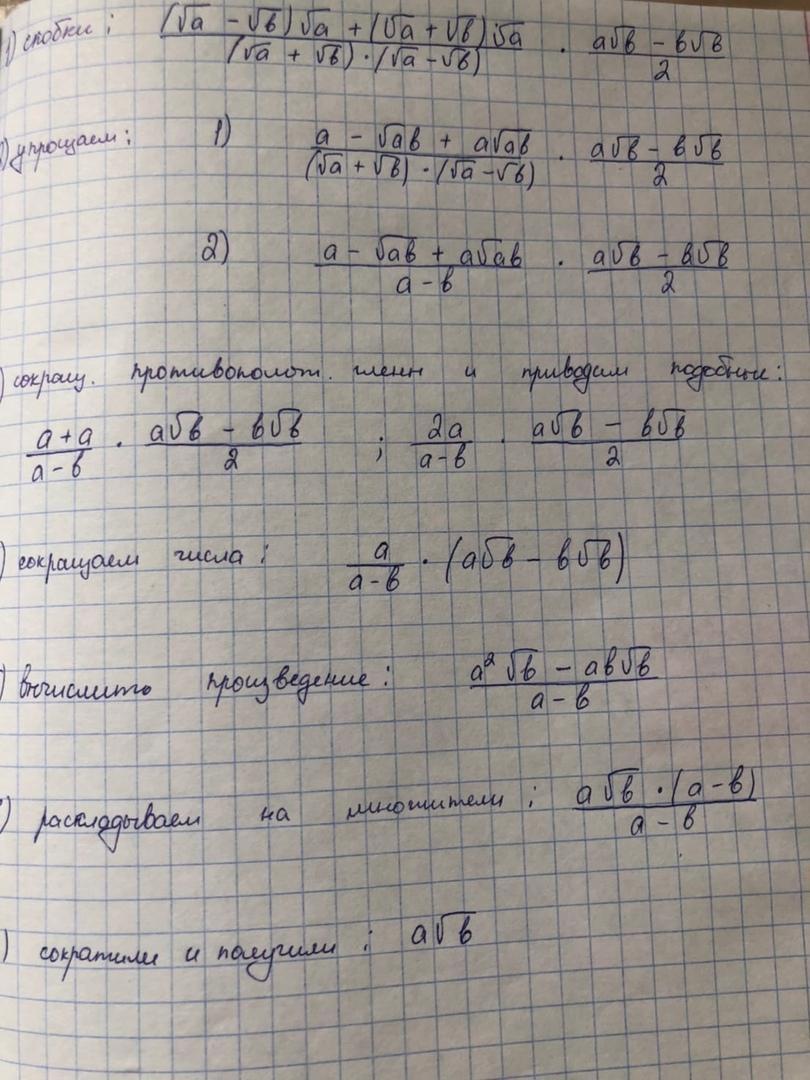 1) скобки: ((√a - √b)√a + (√a + √b)√a) / ((√a + √b) · (√a - √b)) · (a√b - b√b) / 2
) упрощаем: 1) (a - √ab + a√ab) / ((√a + √b) · (√a - √b)) · (a√b - b√b) / 2
2) (a - √ab + a√ab) / (a - b) · (a√b - b√b) / 2
) сокращ. противополож. члены и приводим подобные:
(a + a) / (a - b) · (a√b - b√b) / 2 ; 2a / (a - b) · (a√b - b√b) / 2
) сокращаем числа: a / (a - b) · (a√b - b√b)
) вычислить произведение: (a²√b - ab√b) / (a - b)
) раскладываем на множители: (a√b · (a - b)) / (a - b)
) сократили и получили: a√b